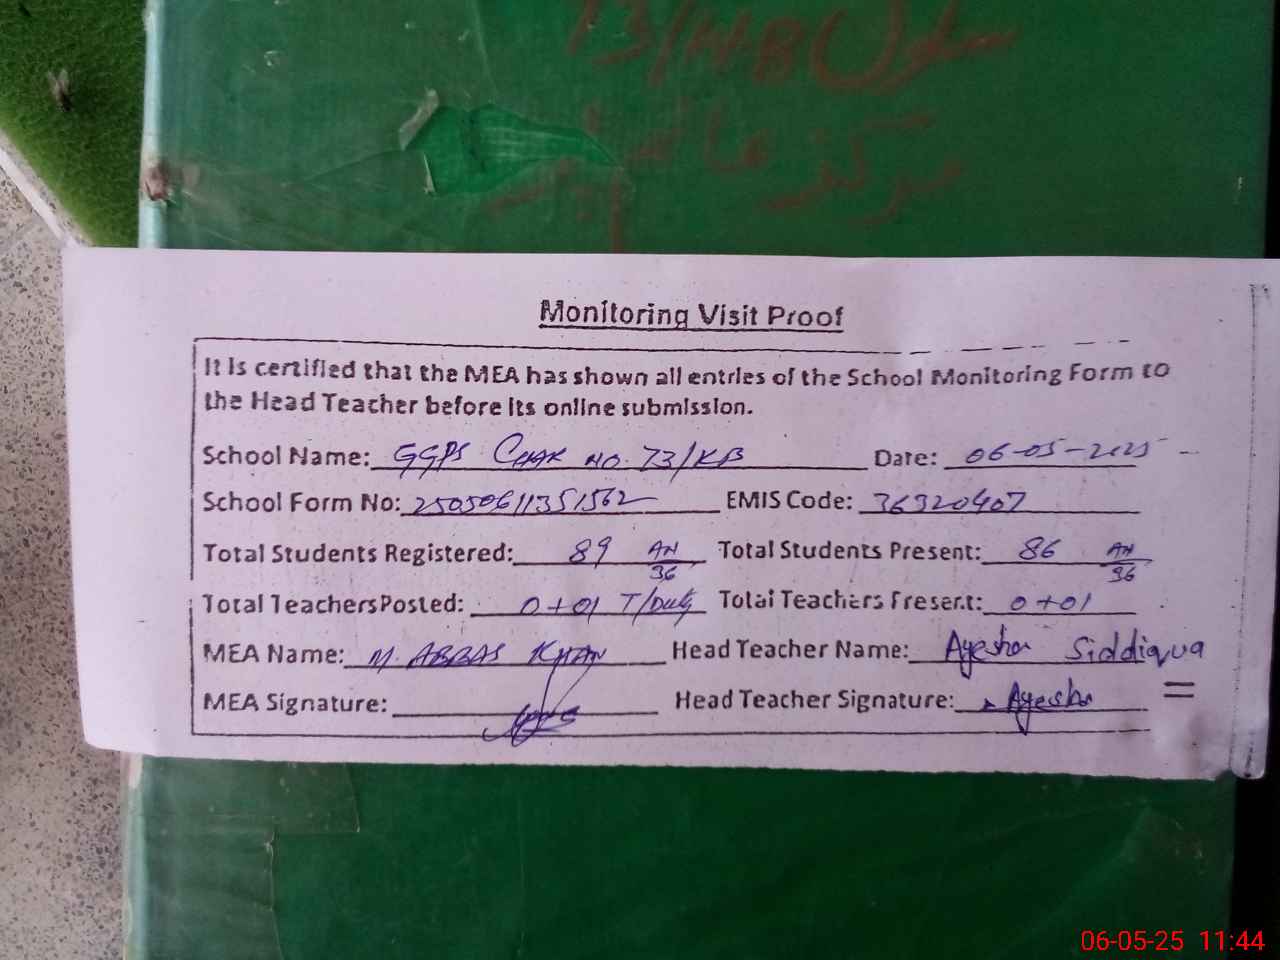 73/
مرکز
Monitoring Visit Proof
It is certified that the MEA has shown all entries of the School Monitoring Form to
the Head Teacher before its online submission.
School Name: GGPS CHAK NO. 73/KB Date: 06-05-2025
School Form No: 25050611351562 EMIS Code: 36320407
Total Students Registered: 89 AN/36 Total Students Present: 86 AN/36
Total Teachers Posted: 0+01 T/Duty Total Teachers Present: 0+01
MEA Name: M. ABBAS KHAN Head Teacher Name: Ayesha Siddiqua
MEA Signature: Head Teacher Signature: Ayesha
06-05-25 11:44